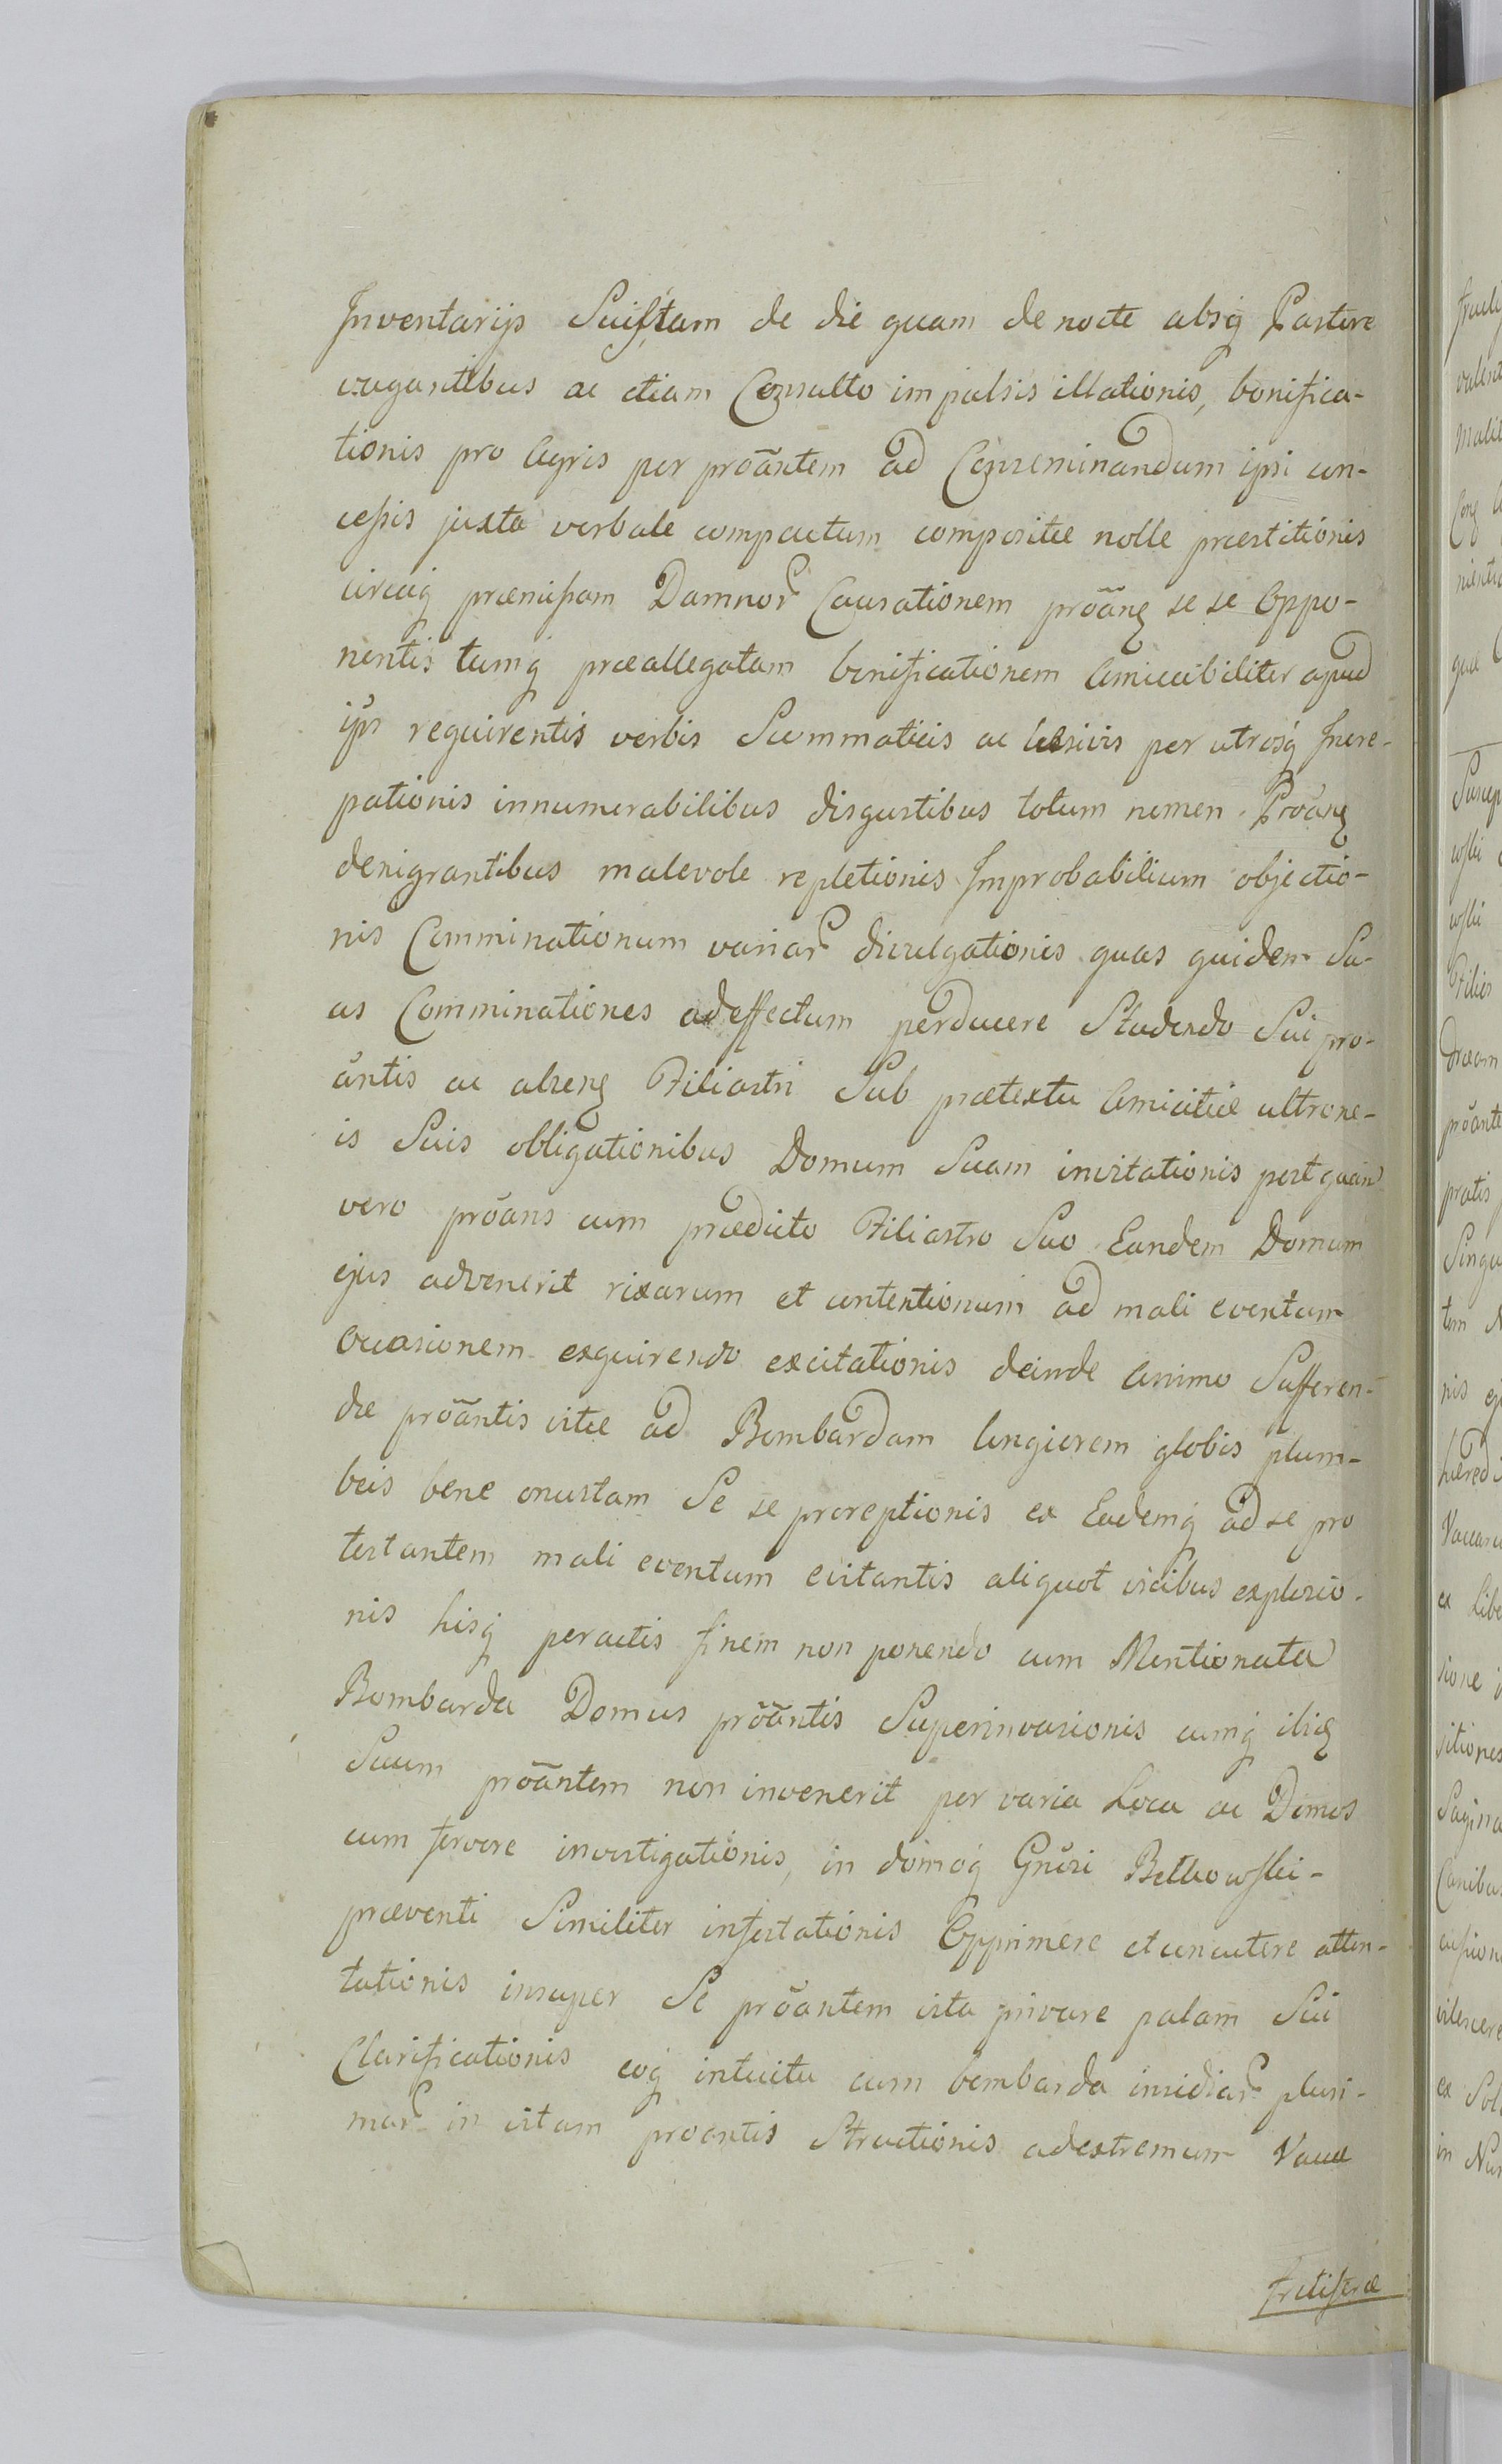 Inventarijs Suis tam de die quam de nocte absq Pastore
vagantibus ac etiam Consulto impulsis illationis, bonifica-
tionis pro Agris per proãntem ad Conseminandum ipsi con-
cessis juxta verbale compactum compositæ nolle præstitionis
circaq præmissam Damnor Causationem proãnɛ se se Oppo-
nentis tumq præallegatam bonificationem Amicabiliter apud
ips requirentis verbis Summaticis ac læsivis per utrosq Incre-
pationis innumerabilibus disgustibus totum nomen Proãnɛ
denigrantibus malevole repletionis Improbabilium objectio-
nis Comminationum variar divulgationis quas quidem Su-
as Comminationes ad effectum perducere Studendo Sui pro-
ãntis ac alrenɛ Filiastri Sub prætextu Amicitiæ ultrone-
is Suis obligationibus Domum Suam invitationis postquam
vero proãns cum prædicto Filiastro Suo Eandem Domum
ejus advenerit rixarum et contentionum ad mali eventum
Occasionem exquirendo excitationis deinde animo Sufferen-
dæ proãntis vitæ ad Bombardam longiorem globis plum-
beis bene onustam Se se proreptionis ex Eademq ad se pro
testantem mali eventum evitantis aliquot vicibus explosio-
nis hisq peractis finem non ponendo cum Mentionata
Bombarda Domus proãntis Superinvasionis cumq ibiɛ
Suum proãntem non invenerit per varia Loca ac Domos
cum fervore investigationis, in domoq Gnŭsi Betkowski-
præventi Similiter infestationis Opprimere et concutere atten-
tationis insuper Se proãntem vita privare palam Sui
Clarificationis eoq intuitu cum bombarda insidiar pluri-
mar in vitam proantis Structionis ad extremum Vaccæ